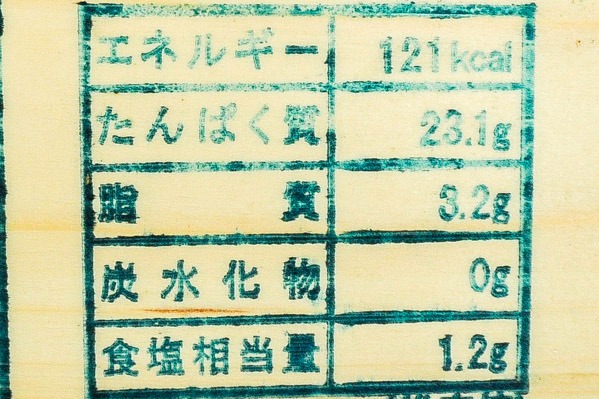 エネルギー 121kcal
たんぱく質 23.1g
脂質 3.2g
炭水化物 0g
食塩相当量 1.2g